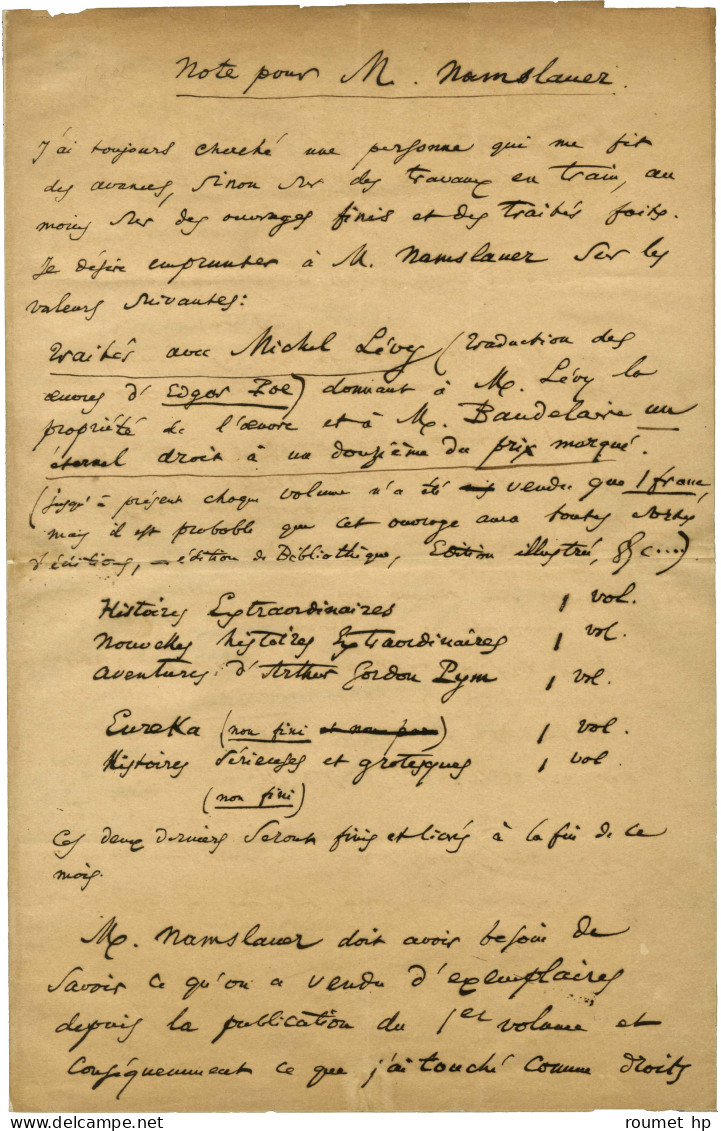 Note pour M. Namslauer.
J'ai toujours cherché une personne qui me fît
des avances, sinon sur des travaux en train, au
moins sur des ouvrages finis et des traités faits.
Je désire emprunter à M. Namslauer sur les
valeurs suivantes:
Traités avec Michel Lévy (traduction des
œuvres d'Edgar Poe) donnant à M. Lévy la
propriété de l'œuvre et à M. Baudelaire un
éternel droit à un douzième du prix marqué.
(jusqu'à présent chaque volume n'a été vendu que 1 franc,
mais il est probable que cet ouvrage aura toutes sortes
d'éditions, — édition de Bibliothèque, Edition illustrée, &c....)
Histoires Extraordinaires 1 vol.
Nouvelles histoires Extraordinaires 1 vol.
Aventures d'Arthur Gordon Pym 1 vol.
Eureka (non fini et non par) 1 vol.
Histoires Sérieuses et grotesques 1 vol
(non fini)
Ces deux derniers seront finis et livrés à la fin de ce
mois.
M. Namslauer doit avoir besoin de
savoir ce qu'on a vendu d'exemplaires
depuis la publication du 1er volume et
conséquemment ce que j'ai touché comme droits
roumet hp